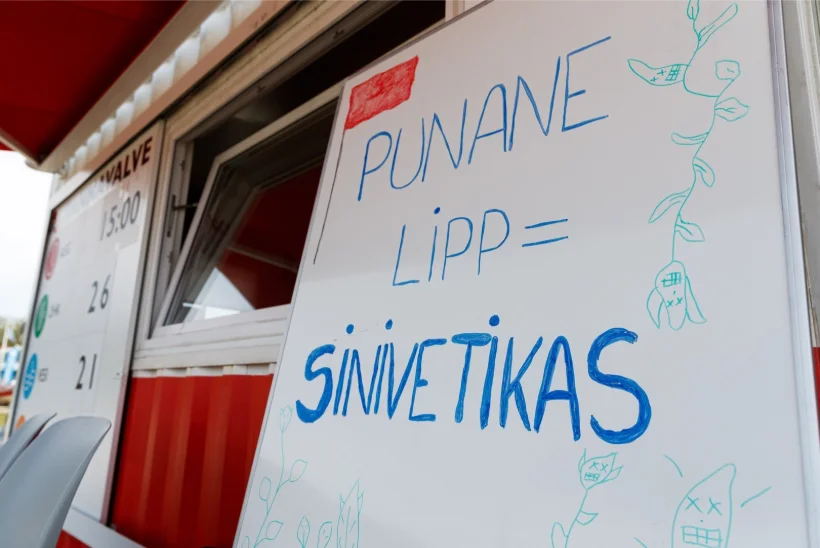 15:00
26
21
PUNANE
LiPP =
SiNiVETiKAS